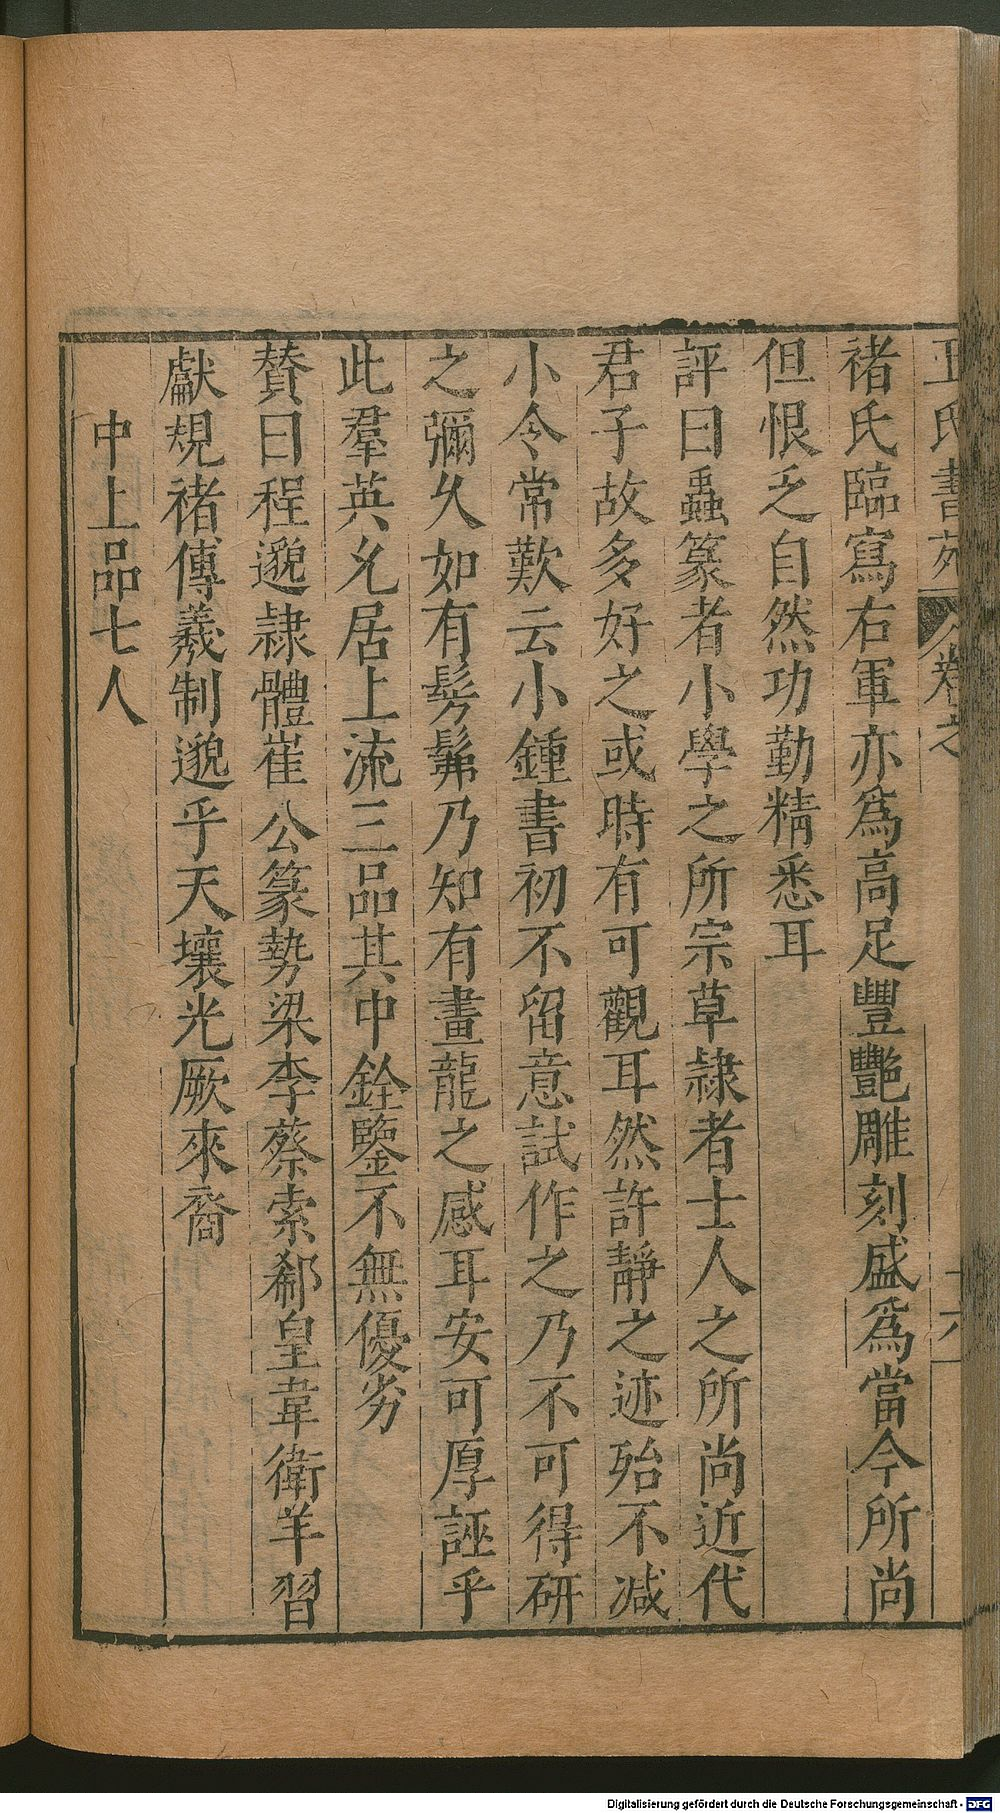 王氏書苑 卷之 六
褚氏臨寫右軍亦爲高足豐艷雕刻盛爲當今所尚
但恨乏自然功勤精悉耳
評曰蟲篆者小學之所宗草隷者士人之所尚近代
君子故多好之或時有可觀耳然許靜之迹殆不减
小令常歎云小鍾書初不留意試作之乃不可得研
之彌久如有髣髴乃知有畫龍之感耳安可厚誣乎
此羣英允居上流三品其中銓鑒不無優劣
贊曰程邈隷體崔公篆勢梁李蔡索郗皇韋衛羊習
獻規褚傳羲制邈乎天壤光厥來裔
中上品七人
Digitalisierung gefördert durch die Deutsche Forschungsgemeinschaft - DFG